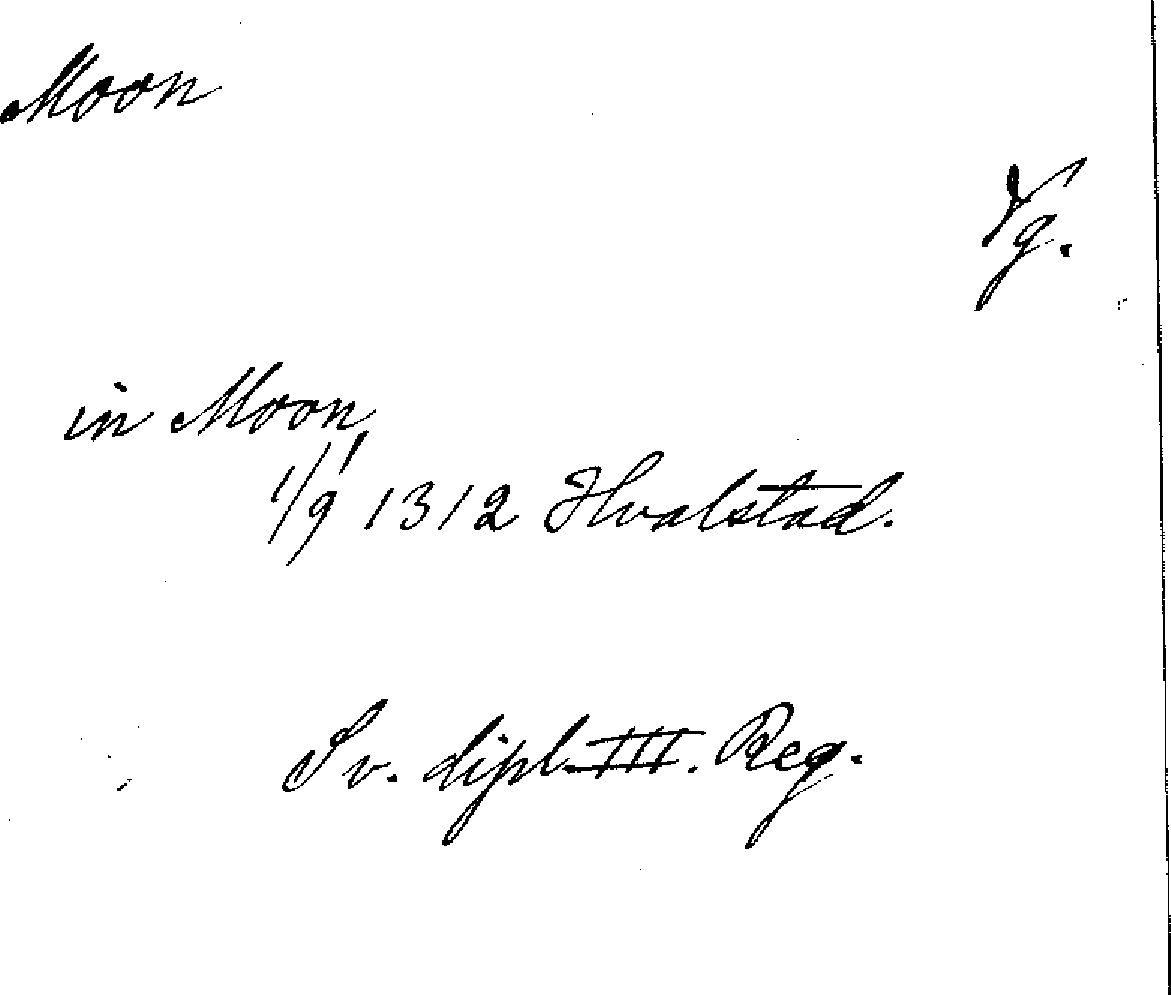 Moon
Vg.
in Moon
1/9 1312 Hvalstad.
Sv. dipl. III. Reg.